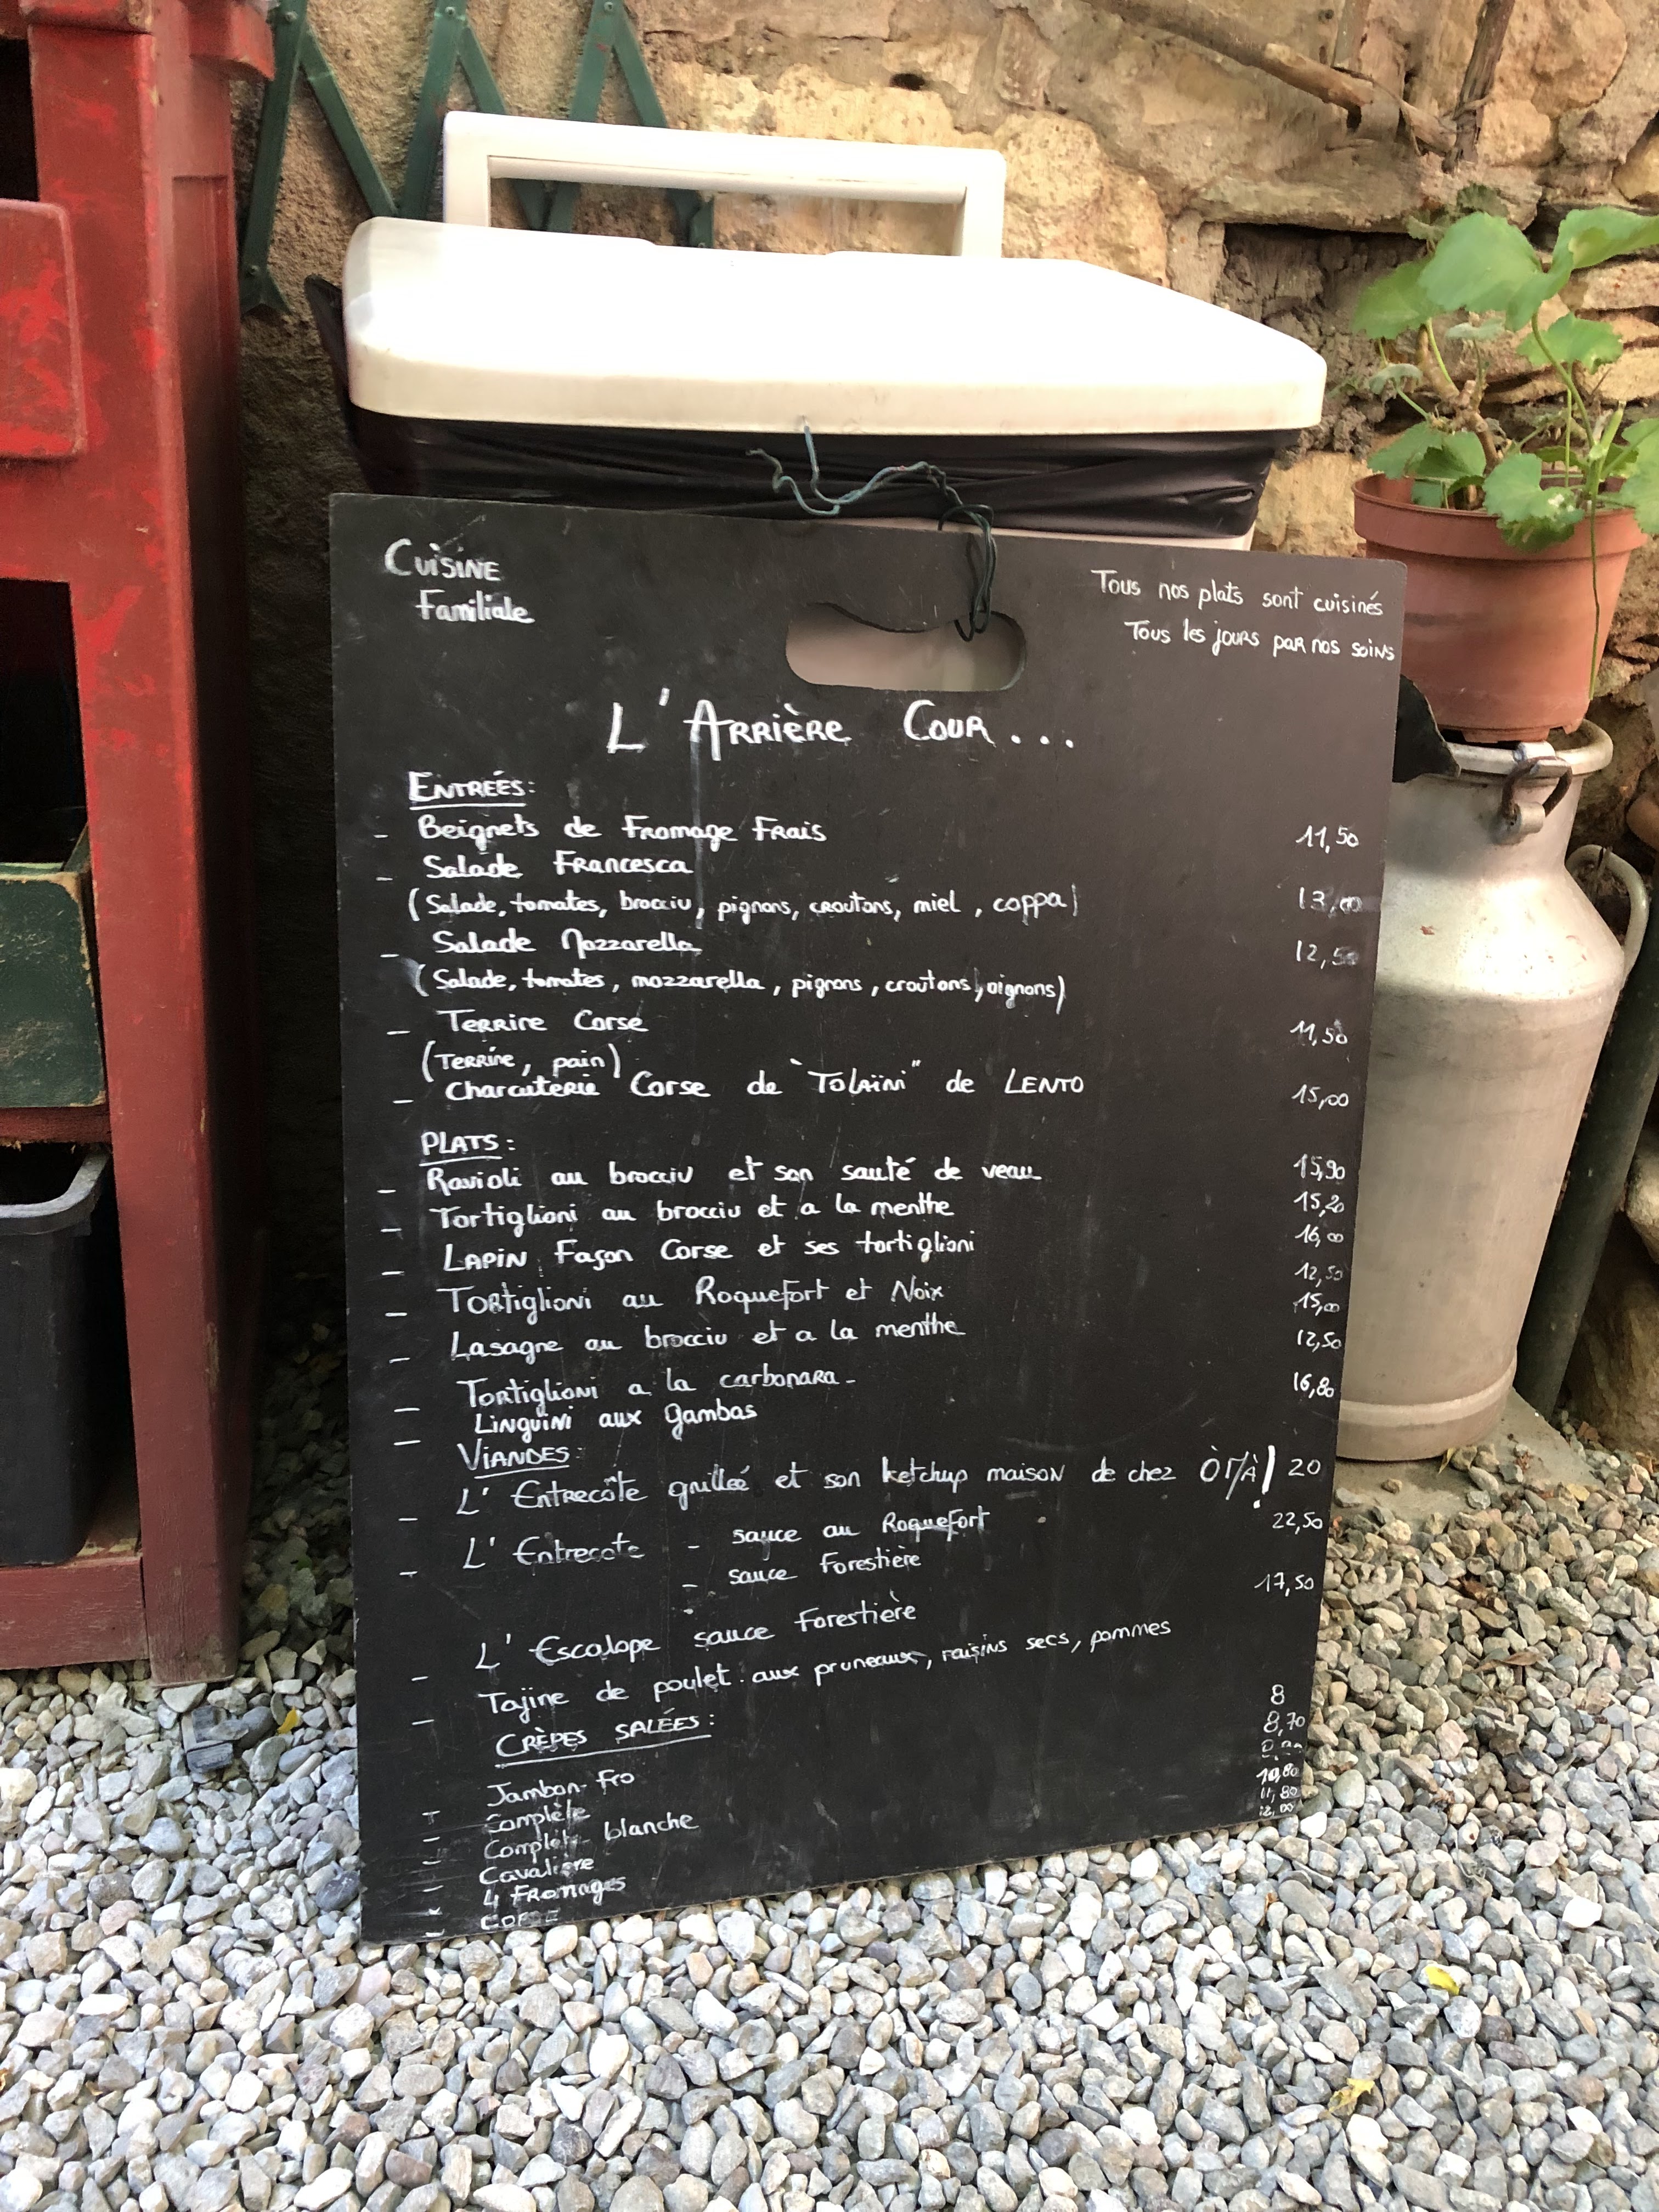 Cuisine
Familiale
Tous nos plats sont cuisinés
Tous les jours par nos soins
L'Arrière Cour...
Entreés:
- Beignets de Fromage Frais 11,50
- Salade Francesca
(Salade, tomates, brocciu, pignons, croutons, miel, coppa) 13,00
- Salade Mozzarella 12,50
(Salade, tomates, mozzarella, pignons, croutons, oignons)
- Terrire Corse 11,50
(Terrine, pain)
- Charcuterie Corse de "Tolaïni" de LENTO 15,00
PLATS:
- Ravioli au brocciu et son sauté de veau 15,90
- Tortiglioni au brocciu et a la menthe 15,20
- Lapin Façon Corse et ses tortiglioni 16,00
- Tortiglioni au Roquefort et Noix 12,50
- Lasagne au brocciu et a la menthe 15,00
- Tortiglioni a la carbonara - 12,50
- Linguini aux gambas 16,80
VIANDES:
- L'Entrecôte grilleé et son ketchup maison de chez 20
- L'Entrecote - sauce au Roquefort 22,50
- sauce Forestière
- L'Escalope sauce Forestière 17,50
- Tajine de poulet aux pruneaux, raisins secs, pommes
CRÊPES SALÉES:
- Jambon-Fro 8
- Complète 8,70
- Complète blanche
- Cavalière 10,80
- 4 Fromages 11,80
- 12,00